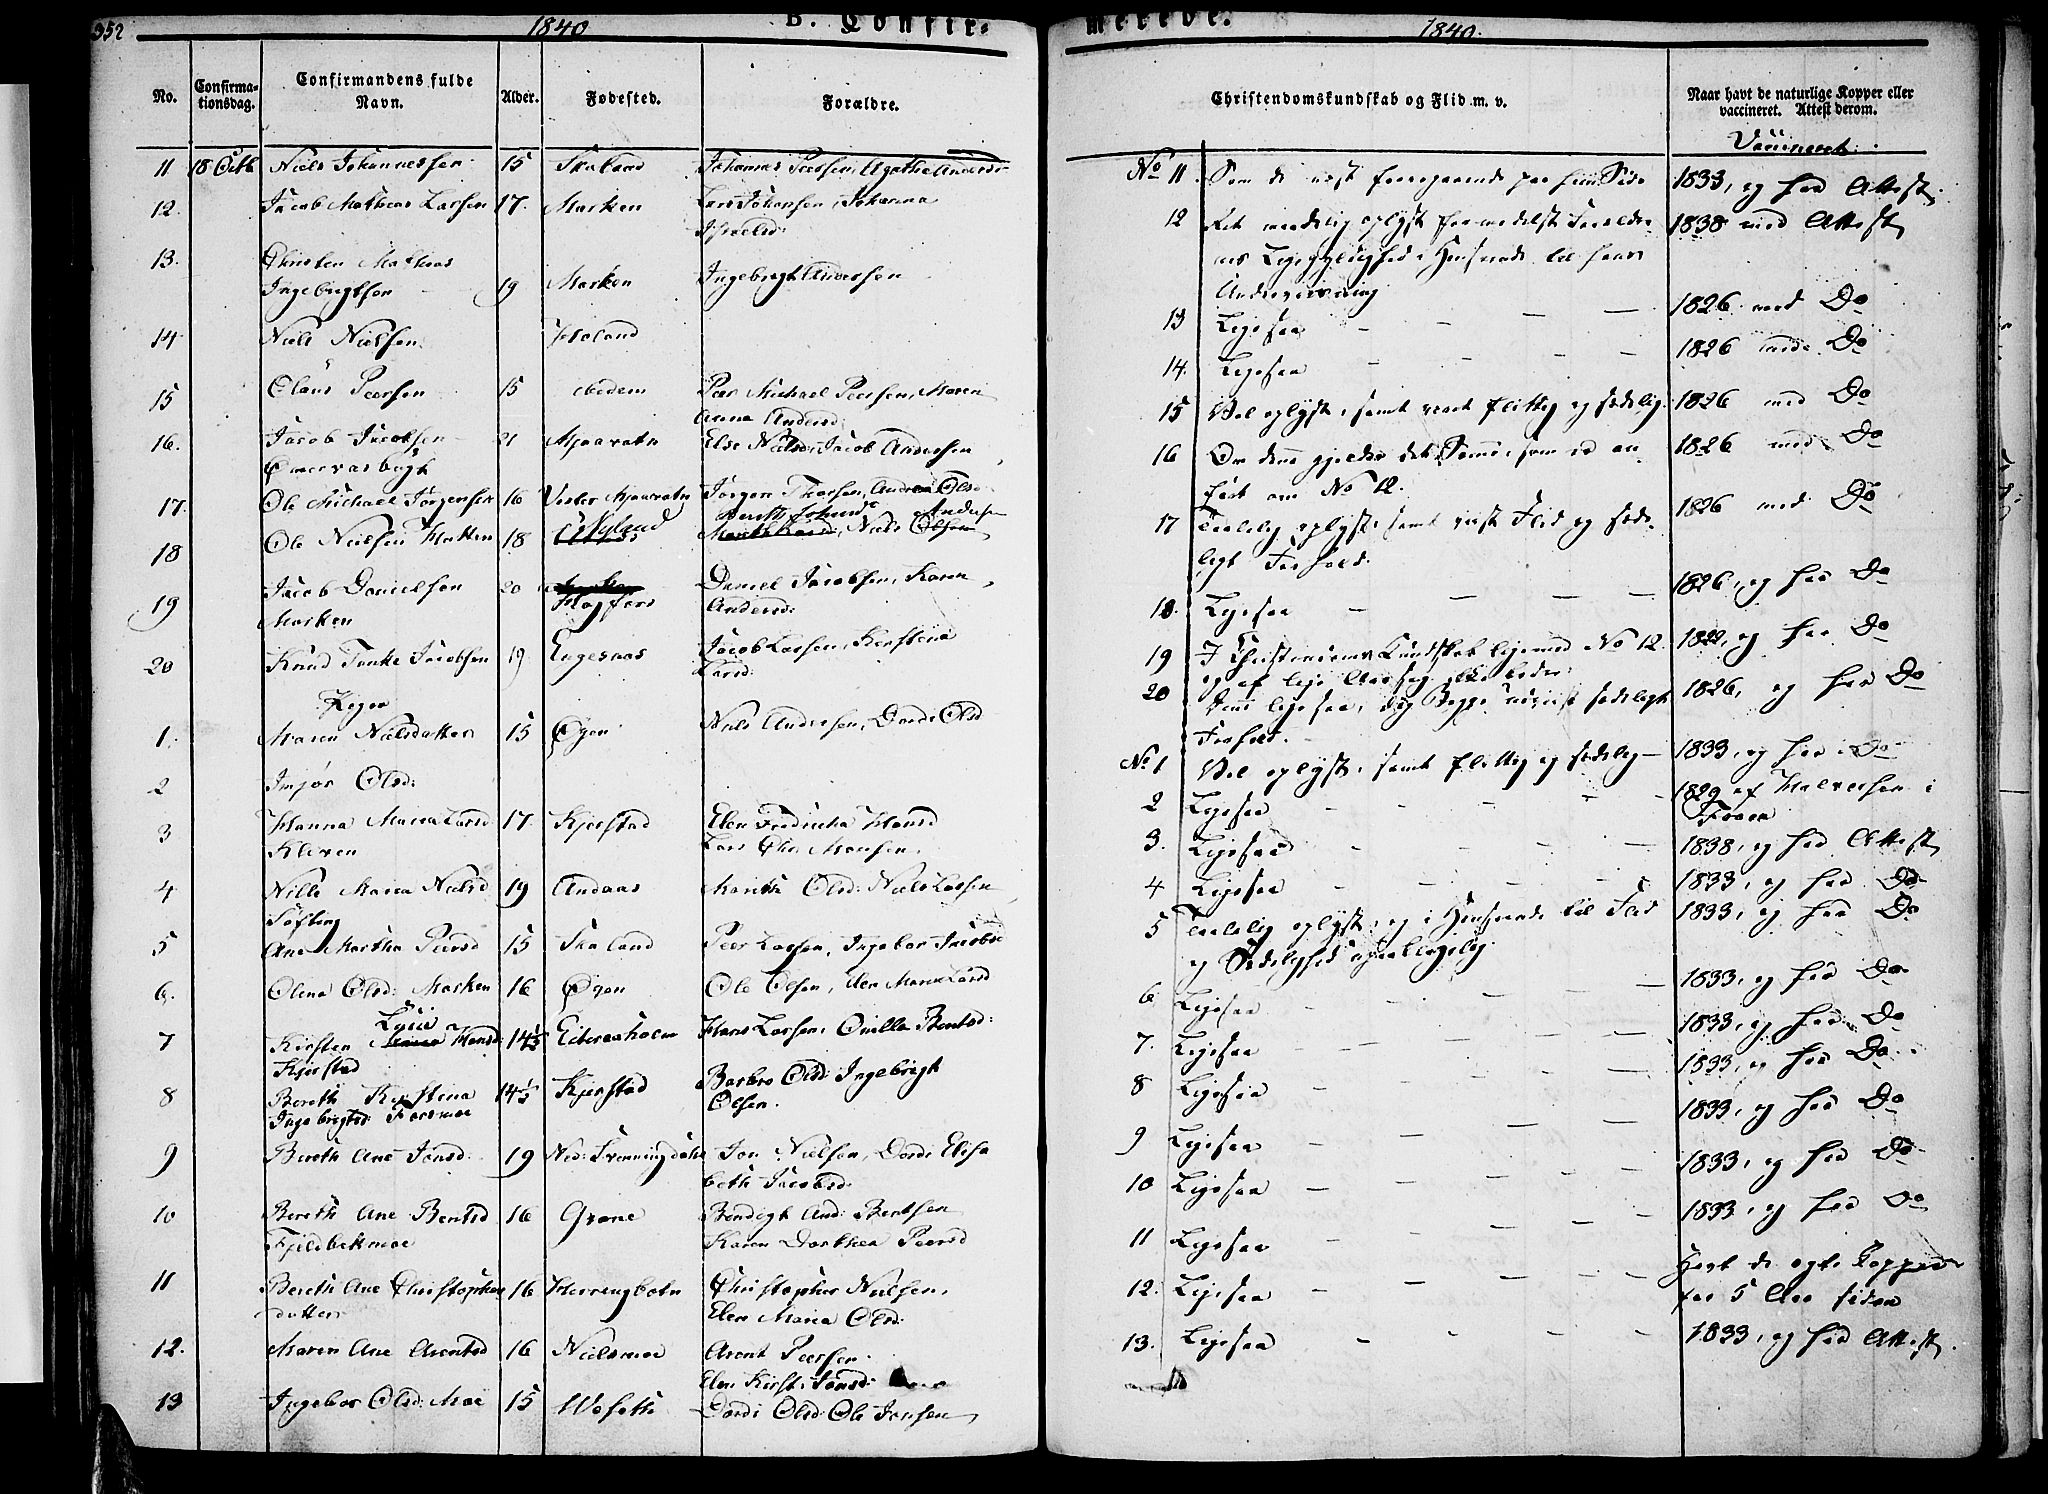 352
1840
B. Confir-
No.
Confirma-
tionsdag.
Confirmandens fulde
Navn.
Alder.
Fødested.
Forældre.
11 18 Octb Niels Johannessen 15 Skaland Johannes Peersen, Agathe Andersd
12. Jacob Mathias Larsen 17. Marken Lars Johansen, Johanna
Israelsd:
13. Christen Mathias
Ingebrigtsen 19 Marken Ingebrigt Andersen
14 Niels Nielsen Haland
15 Claus Peersen 15 ibidem Peer Michael Peersen, Maren
Anna Andersd:
16. Jacob Jacobsen 21 Mjaavatn Else Nielsd, Jacob Andersen
17. Ole Michael Jörgensen 16 Vester Mjaavatn Jörgen Thorsen, Olsd
Bereth
18 Ole Nielsen Hatten 18 Nyland Niels Olsen
19 Jacob Danielsen 20 Daniel Jacobsen, Karen
Marken Andersd:
20 Knud Tønke Jacobsen 19 Engesnas Jacob Larsen, Kerstina
Larsd:
Piger
1. Maren Nielsdatter 15 Øyen Niels Andersen, Dordi Olsd
2 Imjør Olsd:
3 Hanna Maria Larsd 17. Kjerstad Elen Fredricka Hansd
Kleven Lars Chr: Monsen.
4 Nille Maria Nielsd 19 Andaas Marith Olsd: Niels Larsen
Søfting
5 Ane Martha Peersd 15 Skaland Peer Larsen, Ingebor Jacobsd
6. Olena Olsd: Marken 16 Øyen Ole Olsen, Elen Maria Larsd
Lucie
7 Kirsten Hansd: 14½ Eiteraaholm Hans Larsen, Bentsd:
Kjerstad
8 Bereth Kjestina 14½ Kjerstad Barbro Olsd: Ingebrigt
Ingebrigtsd Forsmoe Olsen.
9 Bereth Ane Jonsd. 19 Ned: Svenningdahl Jon Nielsen, Dordi Elisa
beth Jacobsd:
10 Bereth Ane Bentsd 16 Grane Bendigt And: Bentsen
Fjeldbekmoe Karen Dorthea Peersd
11 Bereth Ane Christopher 16 Herringbotn Christopher Nielsen,
datter Elen Maria Olsd:
12. Maren Ane Arentsd 16 Nielsmoe Arent Peersen
Elen Kirst: Jonsd:
13 Ingebor Olsd: Moe 15 Dordi Olsd: Ole Jonsen
merede.
1840.
Christendomskundskab og Flid m. v.
Naar havt de naturlige Kopper eller
vaccineret. Attest derom.
Vaccineret.
No 11. Som de næst foregaaende paa hiin Side 1833, og har Attest.
12 Ret maadelig oplyst formedelst Forældre-
nes Ligegyldighed i Henseende til hans 1838 med Attest
Underviisning
13 Ligesaa 1826 med Do
14. Ligesaa 1826 med Do
15 Vel oplyst, samt viist flittig og sædelig. 1826 med Do
16 Om denne gjelder det Samme, som er an- 1826 med Do
fört om No 12.
17 Taalelig oplyst, samt viist Flid og sæde- 1826 med Do
ligt Forhold.
18. Ligesaa 1826, og har Do
19 I Christendoms Kundskab lige med No 12. 1822, og har Do
og af lige Aarsag
20 ligesaa, Begge sædeligt 1826, og har Do
Forhold.
No 1 Vel oplyst, samt flittig og sædelig 1833, og har Do
2 Ligesaa 1829 af Halvorsen i
3. Ligesaa 1838, og har Attest
4 Ligesaa 1833, og har Do
5 Taalelig oplyst, og i Henseende til Flid 1833, og har Do
og Sædelighed upaaklagelig.
6 Ligesaa 1833, og har Do
7. Ligesaa 1833, og har Do
8 Ligesaa 1833, og har Do
9 Ligesaa 1833, og har Do
10 Ligesaa 1833, og har Do
11 Ligesaa 1833, og har Do
12. Ligesaa Havt de egte Kopper
for 5 Aar siden
13. Ligesaa 1833, og har Attest.